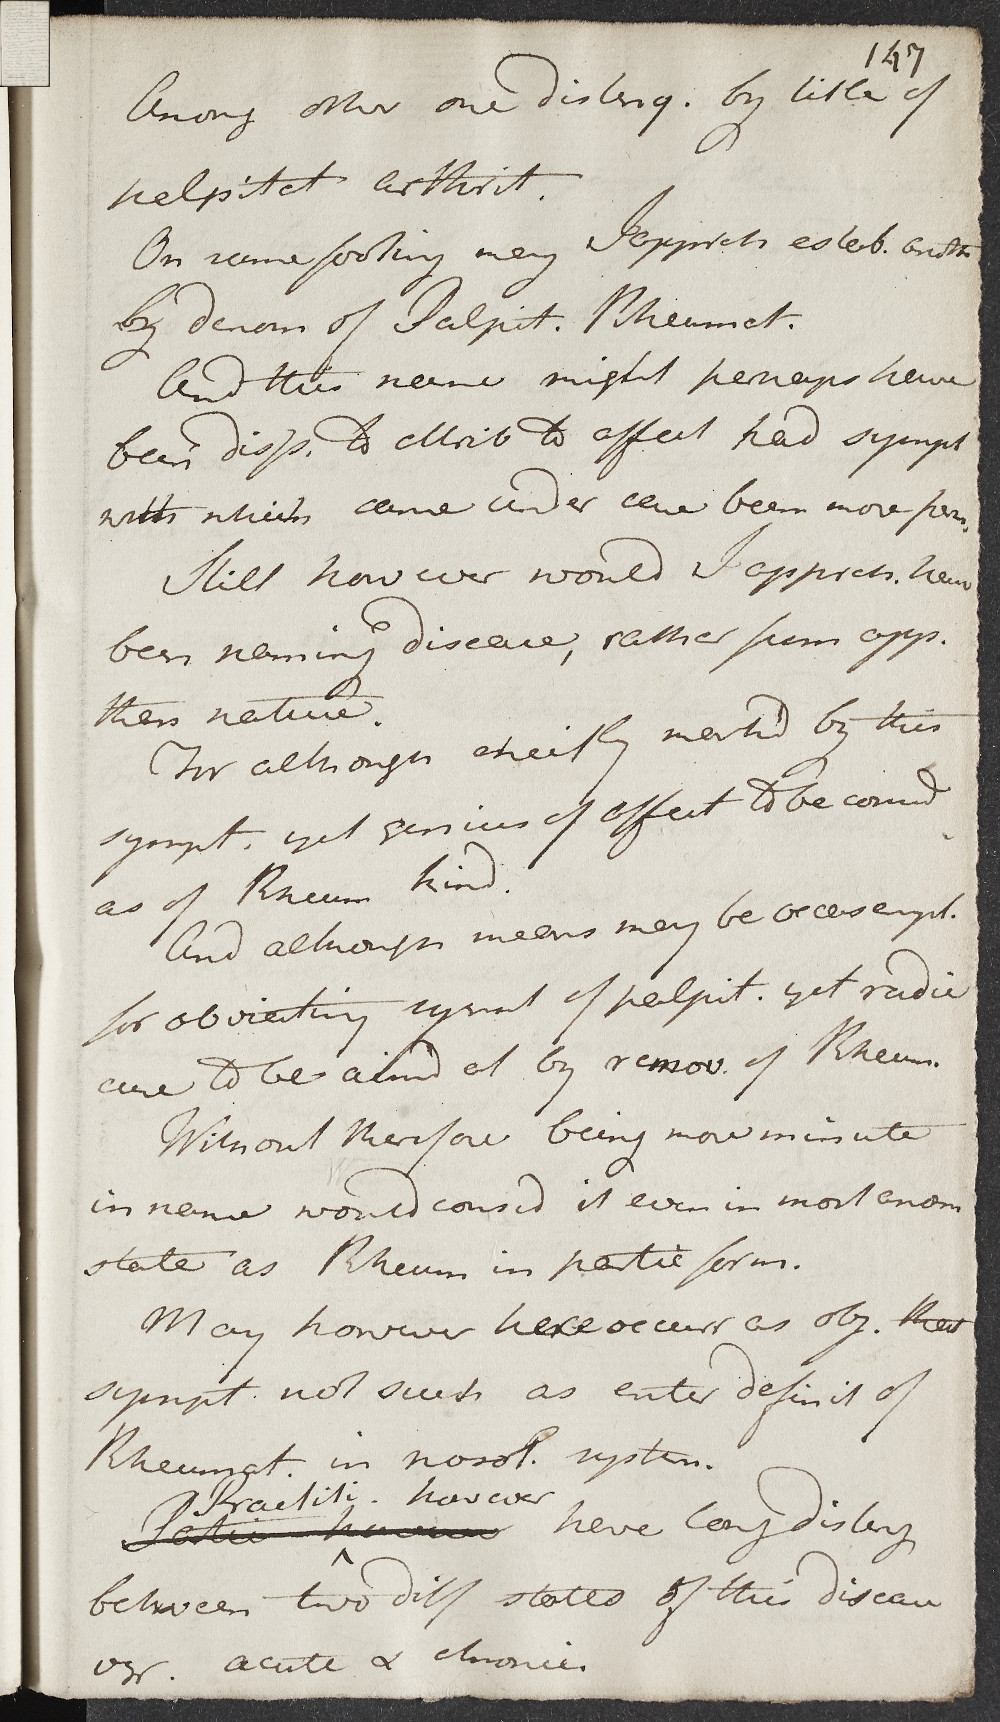 147
Among other one disting. by title of
palpitat arthrit.
On same footing may I apprich estab. anoth
by denom of Palpit. Rheumat.
And this name might perhaps have
been disp. to attrib to affect had sympt
with which came under care been more perm.
Still however would I appreh. have
been naming disease, rather from app.
than nature.
For although chiefly mark'd by this
sympt. yet genius of affect to be consid
as of Rheum kind.
And although means may be occas empl.
for obviating sympt of palpit. yet radic
cure to be aim'd at by remov. of Rheum.
Without therefore being more minute
in name would consid it even in most anom
state as Rheum in partic form.
May however here occurr as obj. that
sympt. not such as enter definit of
Rheumat. in nosol. system.
Practiti. however
have long disting
between two diff states of this diseau
viz. acute & chronic.